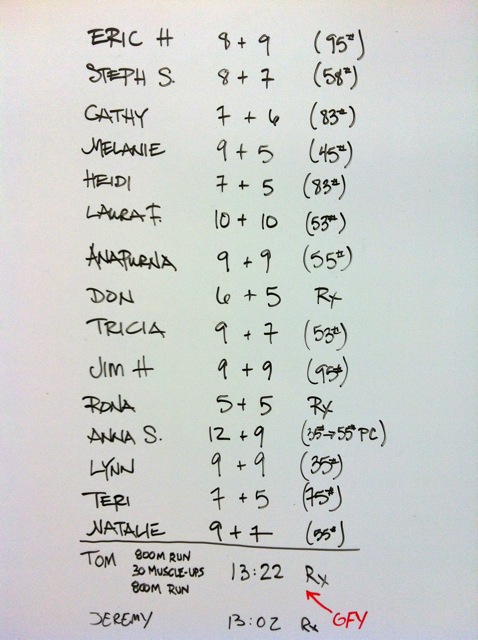 ERIC H 8 + 9 (95#)
STEPH S. 8 + 7 (58#)
CATHY 7 + 6 (83#)
MELANIE 9 + 5 (45#)
HEIDI 7 + 5 (83#)
LAURA F. 10 + 10 (53#)
ANAPURNA 9 + 9 (55#)
DON 6 + 5 Rx
TRICIA 9 + 7 (53#)
JIM H 9 + 9 (95#)
RONA 5 + 5 Rx
ANNA S. 12 + 9 (35#→55# PC)
LYNN 9 + 9 (35#)
TERI 7 + 5 (75#)
NATALIE 9 + 7 (35#)
TOM 800M RUN
30 MUSCLE-UPS 13:22 Rx
800M RUN
GFY
JEREMY 13:02 Rx